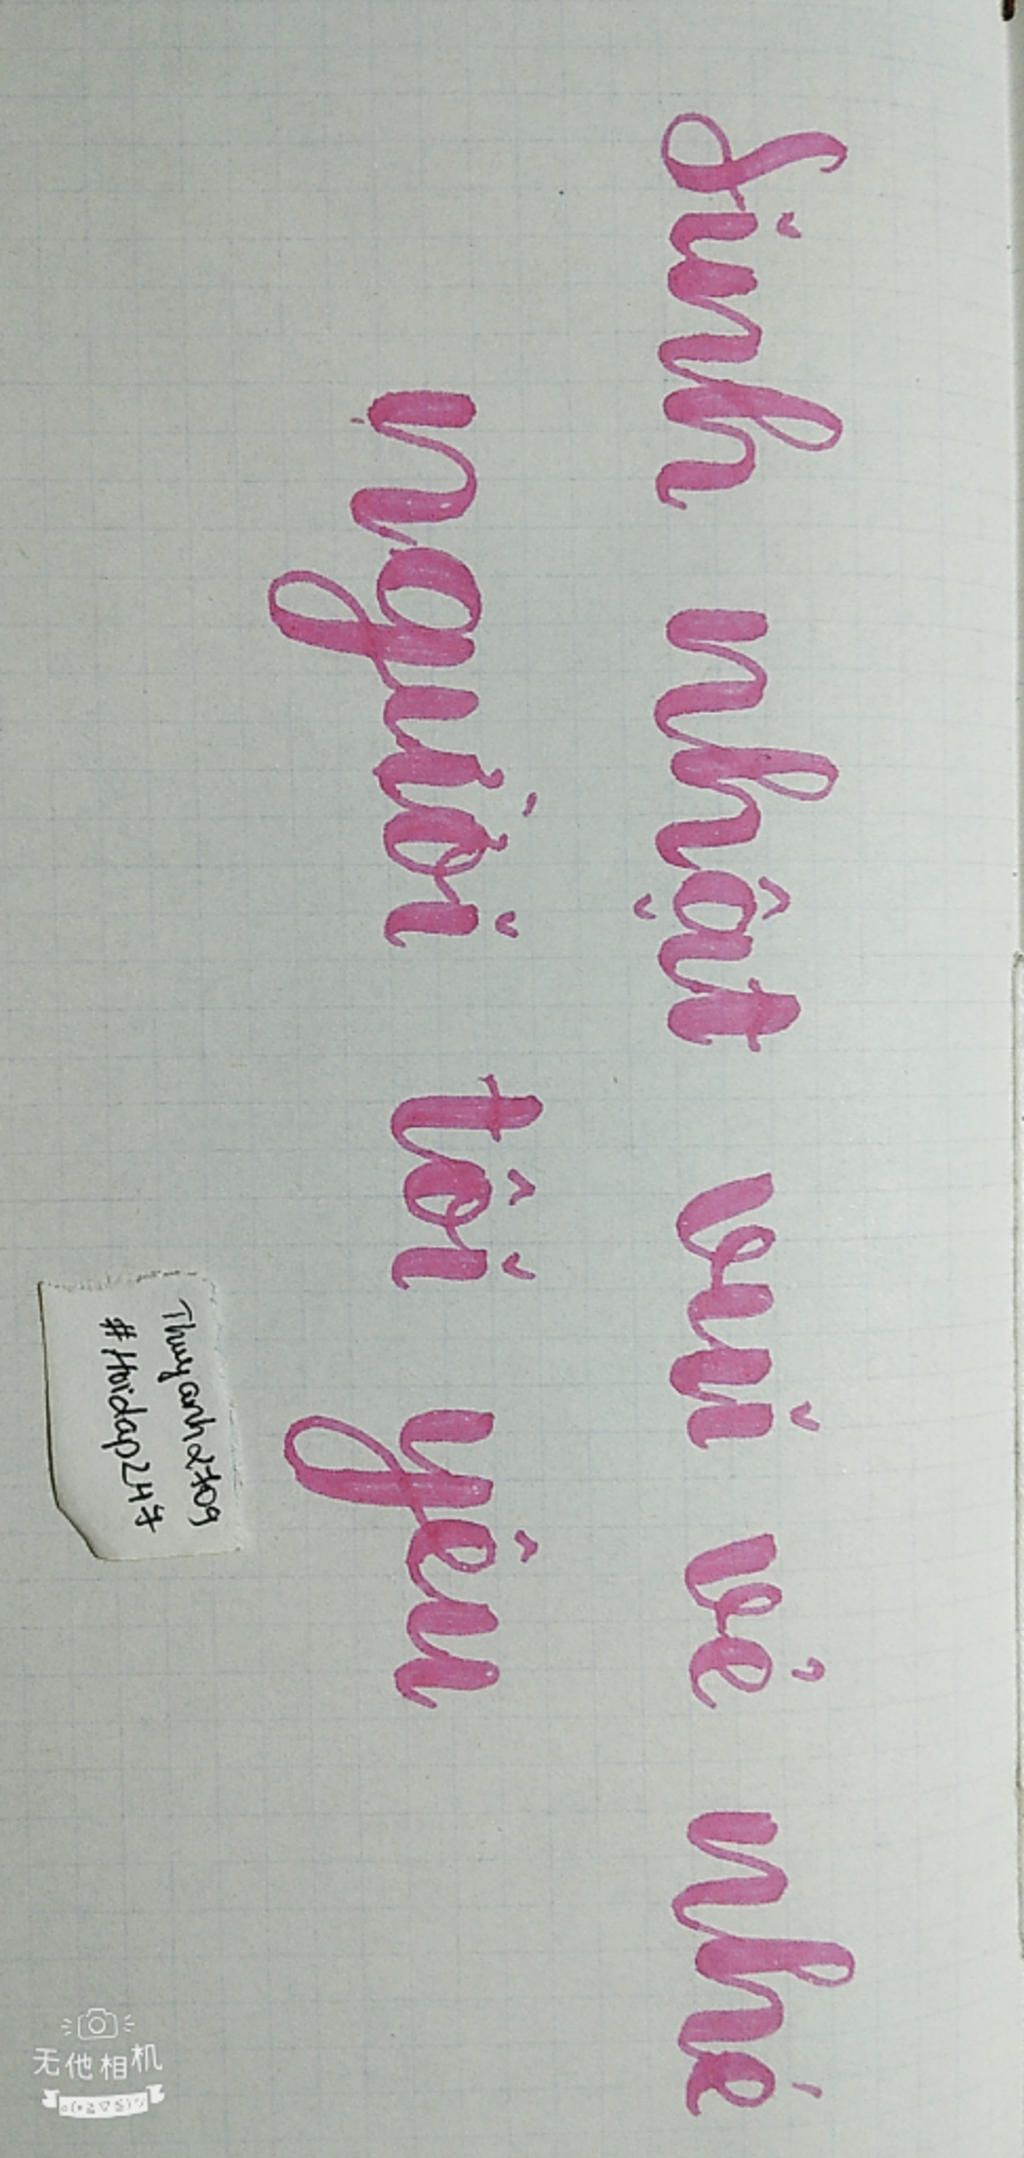 Sinh nhật vui vẻ nhé
người tôi yêu
Thuyanh2709
#Hoidap247
无他相机